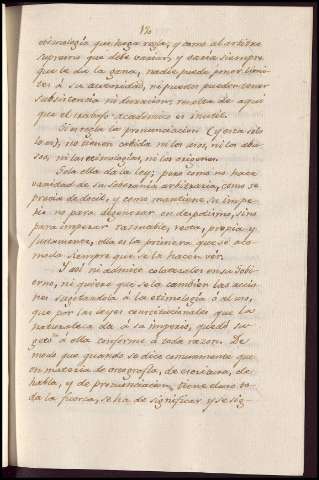 170
etimología que haga regla, y como al arbitro
supremo que debe variar, y varia siempre
que le da la gana, nadie puede poner limi-
tes á su autoridad, ni pueden pueden tener
subsistencia ni duracion; resulta de aqui
que el trabajo académico es inutil.
Si arregla la pronunciacion (y esta solo
lo es), no tienen cabida ni los usos, ni los abu-
sos, ni las etimologías, ni los orígenes.
Sola ella da la ley; pero como no hace
vanidad de su soberanía arbitraria, como se
precia de docil, y como mantiene su impe-
rio no para degenerar en despotismo, sino
para imperar razonable, recta, propia y
justamente, ella es la primera que se aco-
moda siempre que se la hacen ver.
Y asi ni admite colaterales en su Gobi-
erno, ni quiere que se la cambien las accio-
nes sugetandola á la etimología ó al uso,
que por las leyes constitucionales que la
naturaleza da á su imperio, quedó su-
geto á ella conforme á toda razon. De
modo que quando se dice comunmente que
en materia de ortografía, de escritura, de
habla, y de pronunciacion, tiene el uso to-
da la fuerza, se ha de significar y se sig-